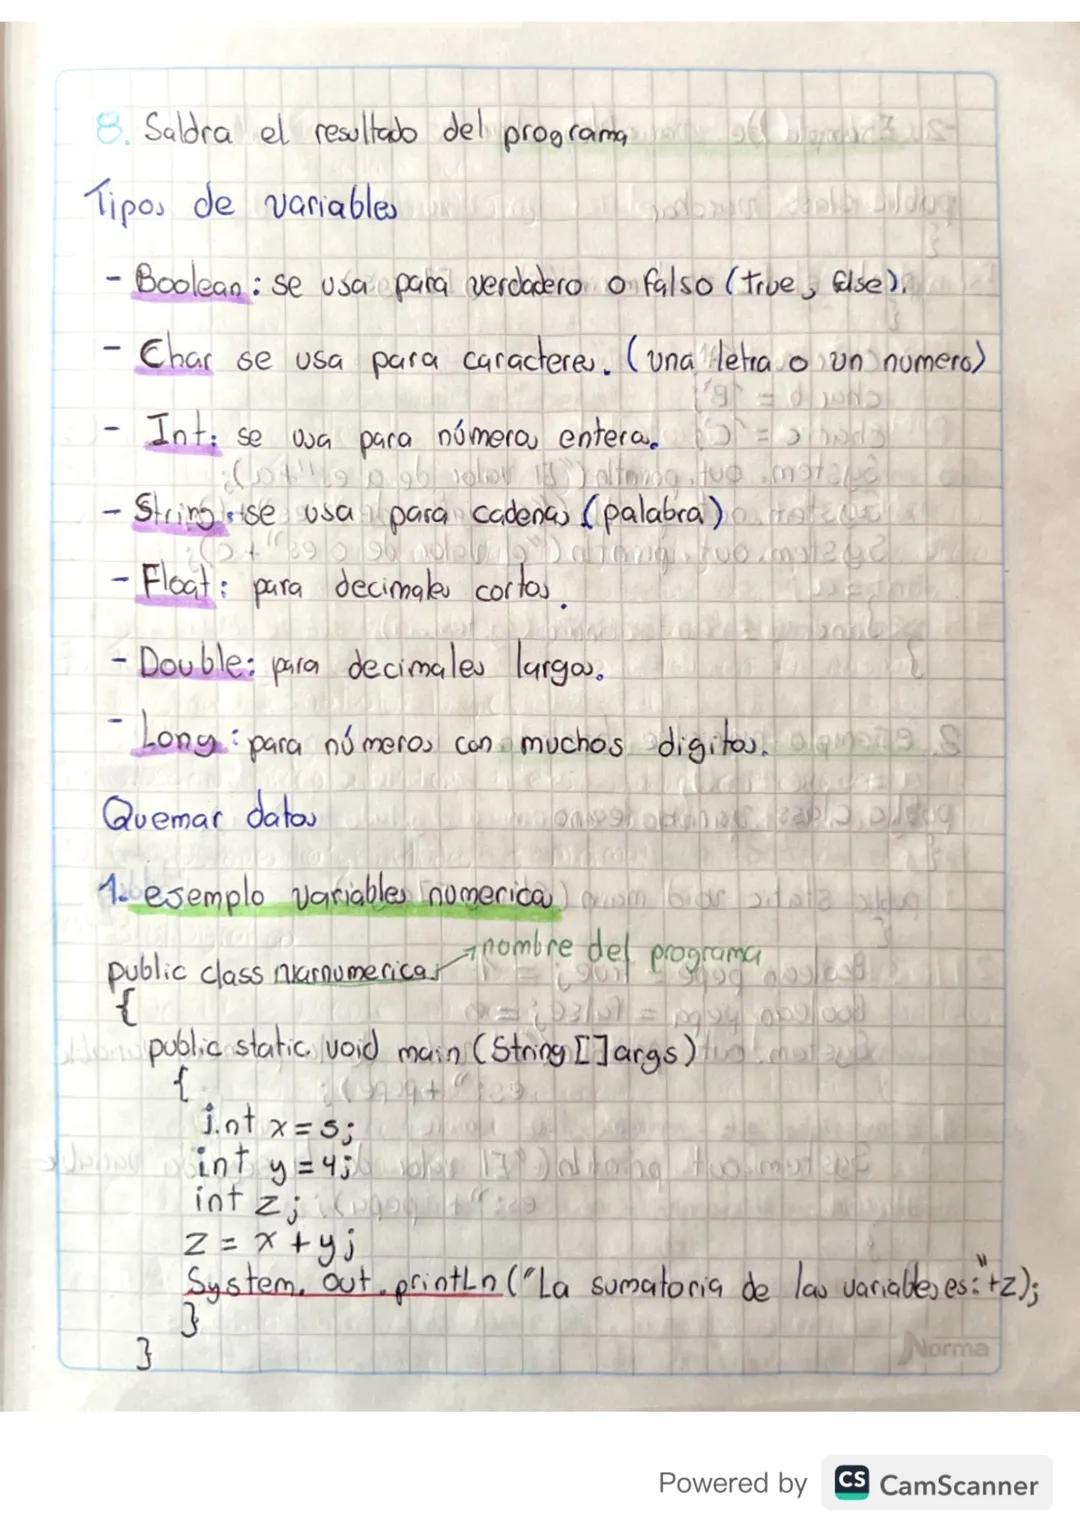 8. Saldra el resultado del programa
Tipos de variables
- Boolean: se usa para verdadero o falso (true, false).
- Char se usa para caracteres. (una letra o un numero)
- Int: se usa para números enteros.
- String: se usa para cadenas (palabra)
- Float: para decimales cortos.
- Double: para decimales largos.
- Long: para números con muchos digitos.
Quemar datos
1. ejemplo variables numericas
public class varnumericas → nombre del programa
{
public static void main (String []args)
{
int x=5;
int y=4;
int z;
z = x+y;
System.out.println("La sumatoria de las variables es:"+z);
}
}
Norma
Powered by CS CamScanner